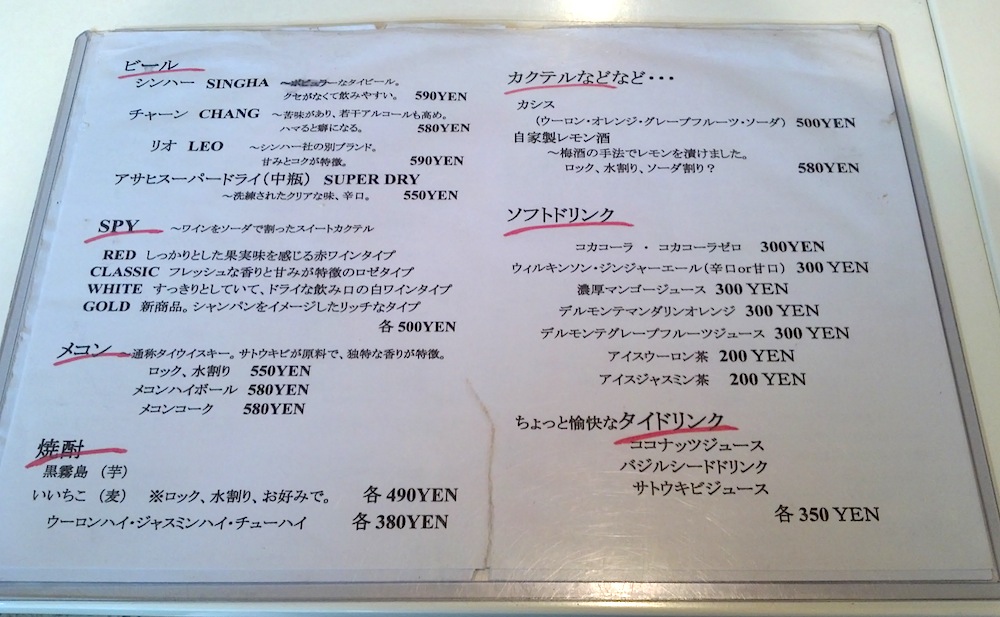 ビール
シンハー SINGHA ～ポピュラーなタイビール。
クセがなくて飲みやすい。 590YEN
チャーン CHANG ～苦味があり、若干アルコールも高め。
ハマると癖になる。 580YEN
リオ LEO ～シンハー社の別ブランド。
甘みとコクが特徴。 590YEN
アサヒスーパードライ（中瓶） SUPER DRY
～洗練されたクリアな味、辛口。 550YEN
SPY ～ワインをソーダで割ったスイートカクテル
RED しっかりとした果実味を感じる赤ワインタイプ
CLASSIC フレッシュな香りと甘みが特徴のロゼタイプ
WHITE すっきりとしていて、ドライな飲み口の白ワインタイプ
GOLD 新商品。シャンパンをイメージしたリッチなタイプ
各 500YEN
メコン ～通称タイウイスキー。サトウキビが原料で、独特な香りが特徴。
ロック、水割り 550YEN
メコンハイボール 580YEN
メコンコーク 580YEN
焼酎
黒霧島 （芋）
いいちこ （麦） ※ロック、水割り、お好みで。 各 490YEN
ウーロンハイ・ジャスミンハイ・チューハイ 各 380YEN
カクテルなどなど・・・
カシス
（ウーロン・オレンジ・グレープフルーツ・ソーダ） 500YEN
自家製レモン酒
～梅酒の手法でレモンを漬けました。
ロック、水割り、ソーダ割り？ 580YEN
ソフトドリンク
コカコーラ ・ コカコーラゼロ 300YEN
ウィルキンソン・ジンジャーエール（辛口or甘口） 300 YEN
濃厚マンゴージュース 300 YEN
デルモンテマンダリンオレンジ 300 YEN
デルモンテグレープフルーツジュース 300 YEN
アイスウーロン茶 200 YEN
アイスジャスミン茶 200 YEN
ちょっと愉快なタイドリンク
ココナッツジュース
バジルシードドリンク
サトウキビジュース
各 350 YEN